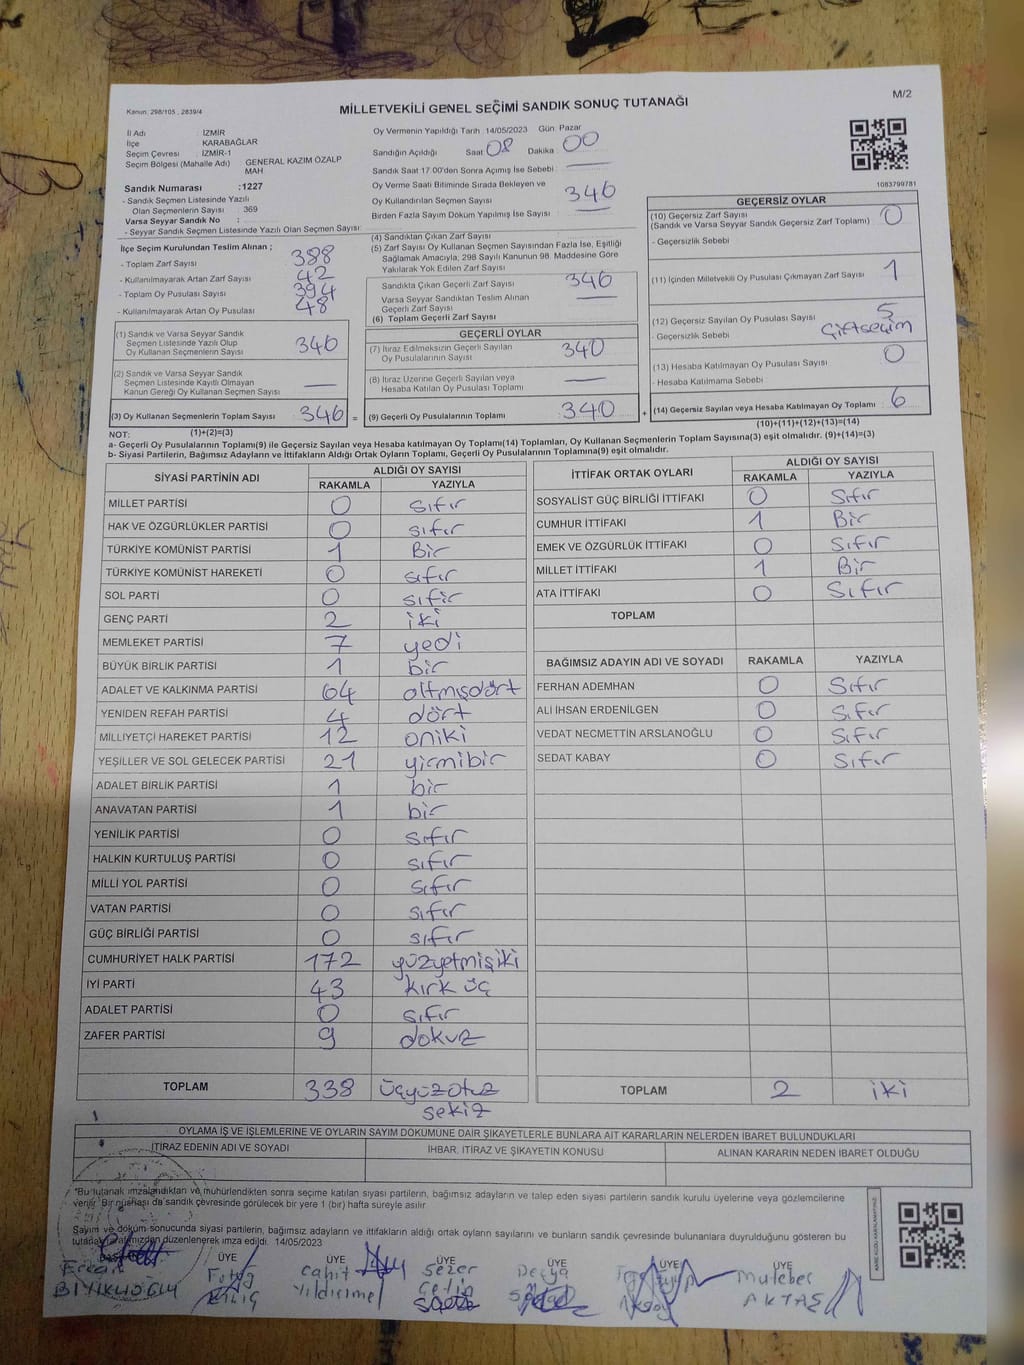 M/2
Kanun: 298/105 , 2839/4
MİLLETVEKİLİ GENEL SEÇİMİ SANDIK SONUÇ TUTANAĞI
İl Adı : İZMİR
İlçe : KARABAĞLAR
Seçim Çevresi : İZMİR-1
Seçim Bölgesi (Mahalle Adı) : GENERAL KAZIM ÖZALP MAH
Sandık Numarası :1227
- Sandık Seçmen Listesinde Yazılı
Olan Seçmenlerin Sayısı : 369
Varsa Seyyar Sandık No :
- Seyyar Sandık Seçmen Listesinde Yazılı Olan Seçmen Sayısı:
İlçe Seçim Kurulundan Teslim Alınan ;
- Toplam Zarf Sayısı : 388
- Kullanılmayarak Artan Zarf Sayısı : 42
- Toplam Oy Pusulası Sayısı : 394
- Kullanılmayarak Artan Oy Pusulası : 48
(1) Sandık ve Varsa Seyyar Sandık
Seçmen Listesinde Yazılı Olup
Oy Kullanan Seçmenlerin Sayısı 346
(2) Sandık ve Varsa Seyyar Sandık
Seçmen Listesinde Kayıtlı Olmayan
Kanun Gereği Oy Kullanan Seçmen Sayısı —
(3) Oy Kullanan Seçmenlerin Toplam Sayısı 346 =
(1)+(2)=(3)
Oy Vermenin Yapıldığı Tarih 14/05/2023 Gün: Pazar
Sandığın Açıldığı Saat 08 Dakika 00
Sandık Saat 17:00'den Sonra Açılmış İse Sebebi :
Oy Verme Saati Bitiminde Sırada Bekleyen ve
Oy Kullandırılan Seçmen Sayısı : 346
Birden Fazla Sayım Döküm Yapılmış İse Sayısı : —
(4) Sandıktan Çıkan Zarf Sayısı
(5) Zarf Sayısı Oy Kullanan Seçmen Sayısından Fazla İse, Eşitliği
Sağlamak Amacıyla, 298 Sayılı Kanunun 98. Maddesine Göre
Yakılarak Yok Edilen Zarf Sayısı
Sandıkta Çıkan Geçerli Zarf Sayısı 346
Varsa Seyyar Sandıktan Teslim Alınan
Geçerli Zarf Sayısı —
(6) Toplam Geçerli Zarf Sayısı
GEÇERLİ OYLAR
(7) İtiraz Edilmeksizin Geçerli Sayılan
Oy Pusulalarının Sayısı 340
(8) İtiraz Üzerine Geçerli Sayılan veya
Hesaba Katılan Oy Pusulası Toplamı —
(9) Geçerli Oy Pusulalarının Toplamı 340 +
1083799781
GEÇERSİZ OYLAR
(10) Geçersiz Zarf Sayısı 0
(Sandık ve Varsa Seyyar Sandık Geçersiz Zarf Toplamı)
- Geçersizlik Sebebi
(11) İçinden Milletvekili Oy Pusulası Çıkmayan Zarf Sayısı 1
(12) Geçersiz Sayılan Oy Pusulası Sayısı 5
- Geçersizlik Sebebi Çiftseçim
(13) Hesaba Katılmayan Oy Pusulası Sayısı 0
- Hesaba Katılmama Sebebi
(14) Geçersiz Sayılan veya Hesaba Katılmayan Oy Toplamı 6
(10)+(11)+(12)+(13)=(14)
NOT:
a- Geçerli Oy Pusulalarının Toplamı(9) ile Geçersiz Sayılan veya Hesaba katılmayan Oy Toplamı(14) Toplamları, Oy Kullanan Seçmenlerin Toplam Sayısına(3) eşit olmalıdır. (9)+(14)=(3)
b- Siyasi Partilerin, Bağımsız Adayların ve İttifakların Aldığı Ortak Oyların Toplamı, Geçerli Oy Pusulalarının Toplamına(9) eşit olmalıdır.
SİYASİ PARTİNİN ADI
ALDIĞI OY SAYISI
RAKAMLA YAZIYLA
MİLLET PARTİSİ 0 sıfır
HAK VE ÖZGÜRLÜKLER PARTİSİ 0 sıfır
TÜRKİYE KOMÜNİST PARTİSİ 1 Bir
TÜRKİYE KOMÜNİST HAREKETİ 0 sıfır
SOL PARTİ 0 sıfır
GENÇ PARTİ 2 iki
MEMLEKET PARTİSİ 7 yedi
BÜYÜK BİRLİK PARTİSİ 1 bir
ADALET VE KALKINMA PARTİSİ 64 altmışdört
YENİDEN REFAH PARTİSİ 4 dört
MİLLİYETÇİ HAREKET PARTİSİ 12 oniki
YEŞİLLER VE SOL GELECEK PARTİSİ 21 yirmibir
ADALET BİRLİK PARTİSİ 1 bir
ANAVATAN PARTİSİ 1 bir
YENİLİK PARTİSİ 0 sıfır
HALKIN KURTULUŞ PARTİSİ 0 sıfır
MİLLİ YOL PARTİSİ 0 sıfır
VATAN PARTİSİ 0 sıfır
GÜÇ BİRLİĞİ PARTİSİ 0 sıfır
CUMHURİYET HALK PARTİSİ 172 yüzyetmişiki
İYİ PARTİ 43 kırk üç
ADALET PARTİSİ 0 sıfır
ZAFER PARTİSİ 9 dokuz
TOPLAM 338 üçyüzotuz
sekiz
İTTİFAK ORTAK OYLARI
ALDIĞI OY SAYISI
RAKAMLA YAZIYLA
SOSYALİST GÜÇ BİRLİĞİ İTTİFAKI 0 Sıfır
CUMHUR İTTİFAKI 1 Bir
EMEK VE ÖZGÜRLÜK İTTİFAKI 0 Sıfır
MİLLET İTTİFAKI 1 Bir
ATA İTTİFAKI 0 Sıfır
TOPLAM
BAĞIMSIZ ADAYIN ADI VE SOYADI RAKAMLA YAZIYLA
FERHAN ADEMHAN 0 Sıfır
ALİ İHSAN ERDENİLGEN 0 Sıfır
VEDAT NECMETTİN ARSLANOĞLU 0 Sıfır
SEDAT KABAY 0 Sıfır
TOPLAM 2 iki
OYLAMA İŞ VE İŞLEMLERİNE VE OYLARIN SAYIM DÖKÜMÜNE DAİR ŞİKAYETLERLE BUNLARA AİT KARARLARIN NELERDEN İBARET BULUNDUKLARI
İTİRAZ EDENİN ADI VE SOYADI
İHBAR, İTİRAZ VE ŞİKAYETİN KONUSU
ALINAN KARARIN NEDEN İBARET OLDUĞU
*Bu tutanak imzalandıktan ve mühürlendikten sonra seçime katılan siyasi partilerin, bağımsız adayların ve talep eden siyasi partilerin sandık kurulu üyelerine veya gözlemcilerine
verilir. Bir nüshası da sandık çevresinde görülecek bir yere 1 (bir) hafta süreyle asılır
Sayım ve döküm sonucunda siyasi partilerin, bağımsız adayların ve ittifakların aldığı ortak oyların sayılarını ve bunların sandık çevresinde bulunanlara duyrulduğunu gösteren bu
tutanak tarafımızdan düzenlenerek imza edildi. 14/05/2023
BAŞKAN ÜYE ÜYE ÜYE ÜYE ÜYE ÜYE
Cahit Sezer Derya Muteber
BIYIKLIOĞLU KILIÇ Yıldırımel Çetin Aksoy AKTAŞ